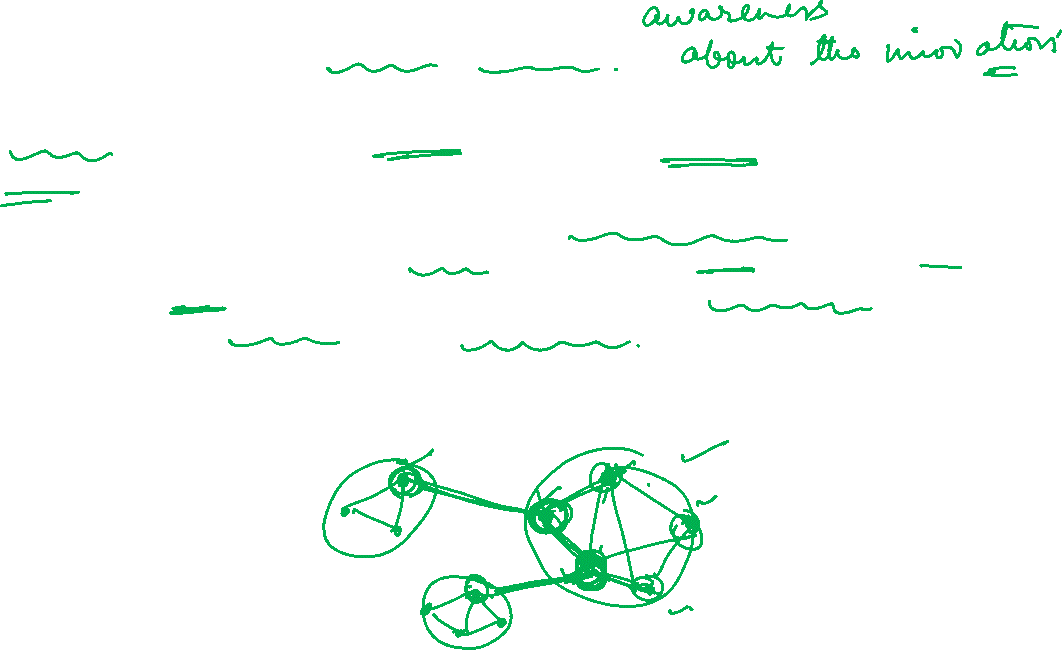 awareness
about the inovation